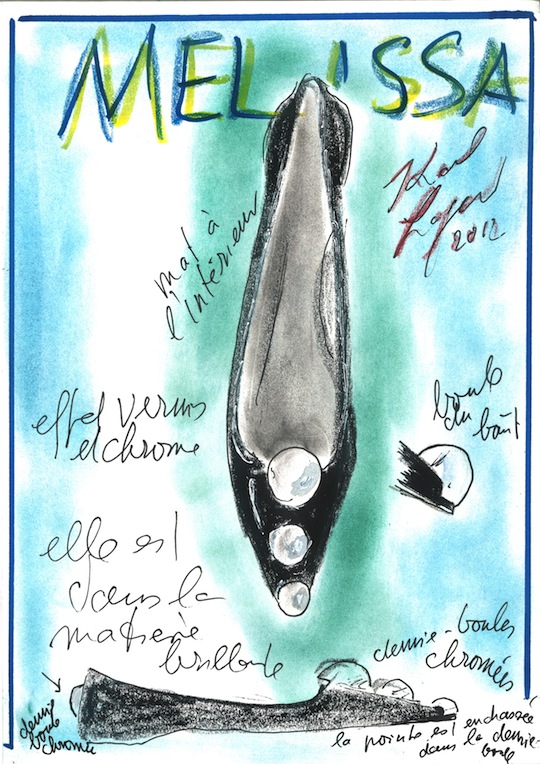 MELISSA
Karl
2012
mat à
l'intérieur
effet vernis
et chrome
boule
du
bout
elle est
dans la
matière
brillante
demie-boules
chromées
demie
boule
chromée
la pointe est enchassée
dans la demie-
boule